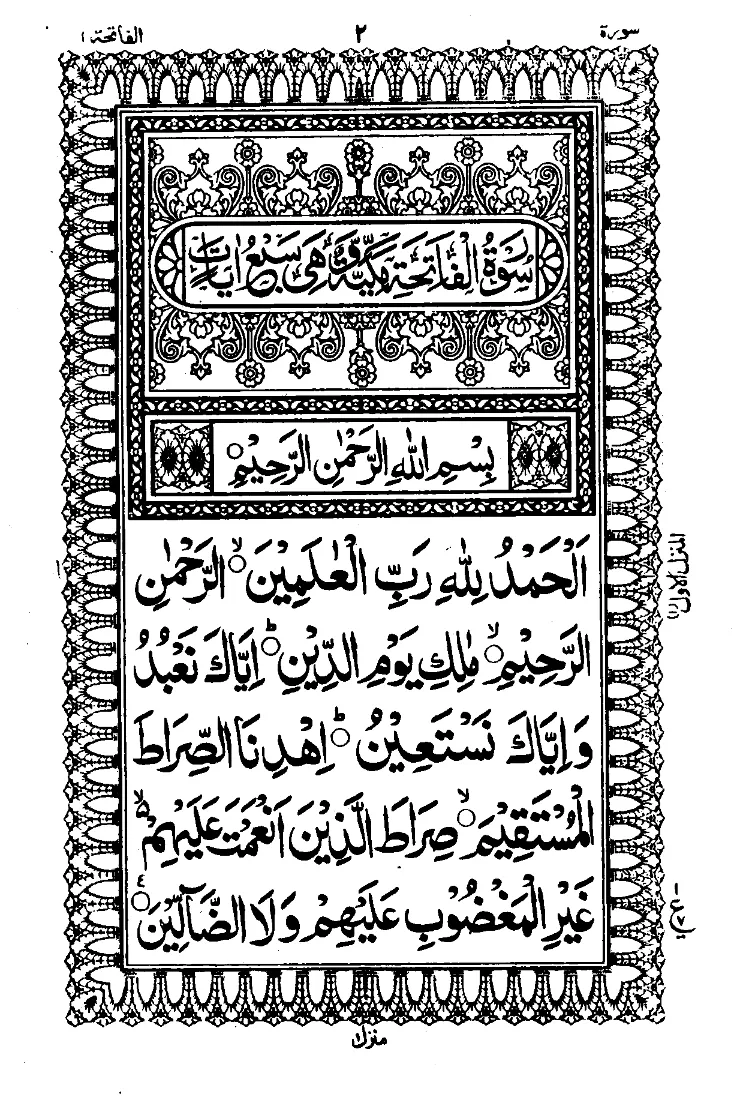 سورة ٢ الفاتحة ١
سُوْرَةُ الْفَاتِحَةِ مَكِّيَّةٌ وَّهِيَ سَبْعُ اٰيَاتٍ
بِسْمِ اللّٰهِ الرَّحْمٰنِ الرَّحِيْمِ○
اَلْحَمْدُ لِلّٰهِ رَبِّ الْعٰلَمِيْنَ○ۙ الرَّحْمٰنِ
الرَّحِيْمِ○ۙ مٰلِكِ يَوْمِ الدِّيْنِ○ؕ اِيَّاكَ نَعْبُدُ
وَاِيَّاكَ نَسْتَعِيْنُ○ؕ اِهْدِنَا الصِّرَاطَ
الْمُسْتَقِيْمَ○ۙ صِرَاطَ الَّذِيْنَ اَنْعَمْتَ عَلَيْهِمْ ۵ۙ
غَيْرِ الْمَغْضُوْبِ عَلَيْهِمْ وَلَا الضَّآلِّيْنَ○
المنزل الاول (١)
منزل